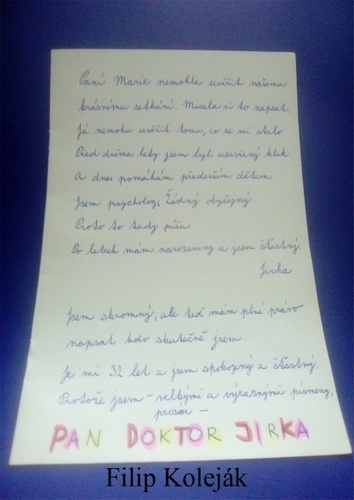 Paní Marie nemohla uvěřit našemu
krásnému setkání. Musela si to napsat.
Já nemohu uvěřit tomu, co se mi stalo.
Před dvěma lety jsem byl uzavřený kluk
A dnes pomáhám především dětem.
Jsem psycholog. Žádný obyčejný
Proto to tady píšu
Po letech mám narozeniny a jsem šťastný
Jirka
Jsem skromný, ale teď mám plné právo
napsat kdo skutečně jsem
Je mi 32 let a jsem spokojený a šťastný.
Protože jsem - velkými a výraznými písmeny,
prosím -
PAN DOKTOR JIRKA
Filip Koleják